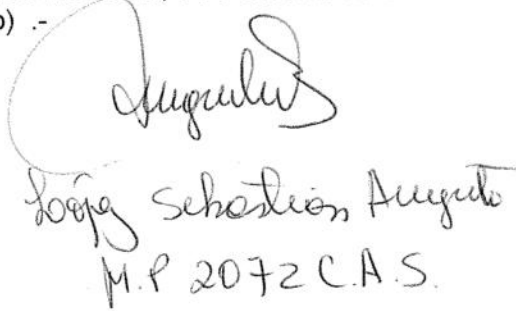 o) .-
López Sebastian Augusto
M.P 2072 C.A.S.